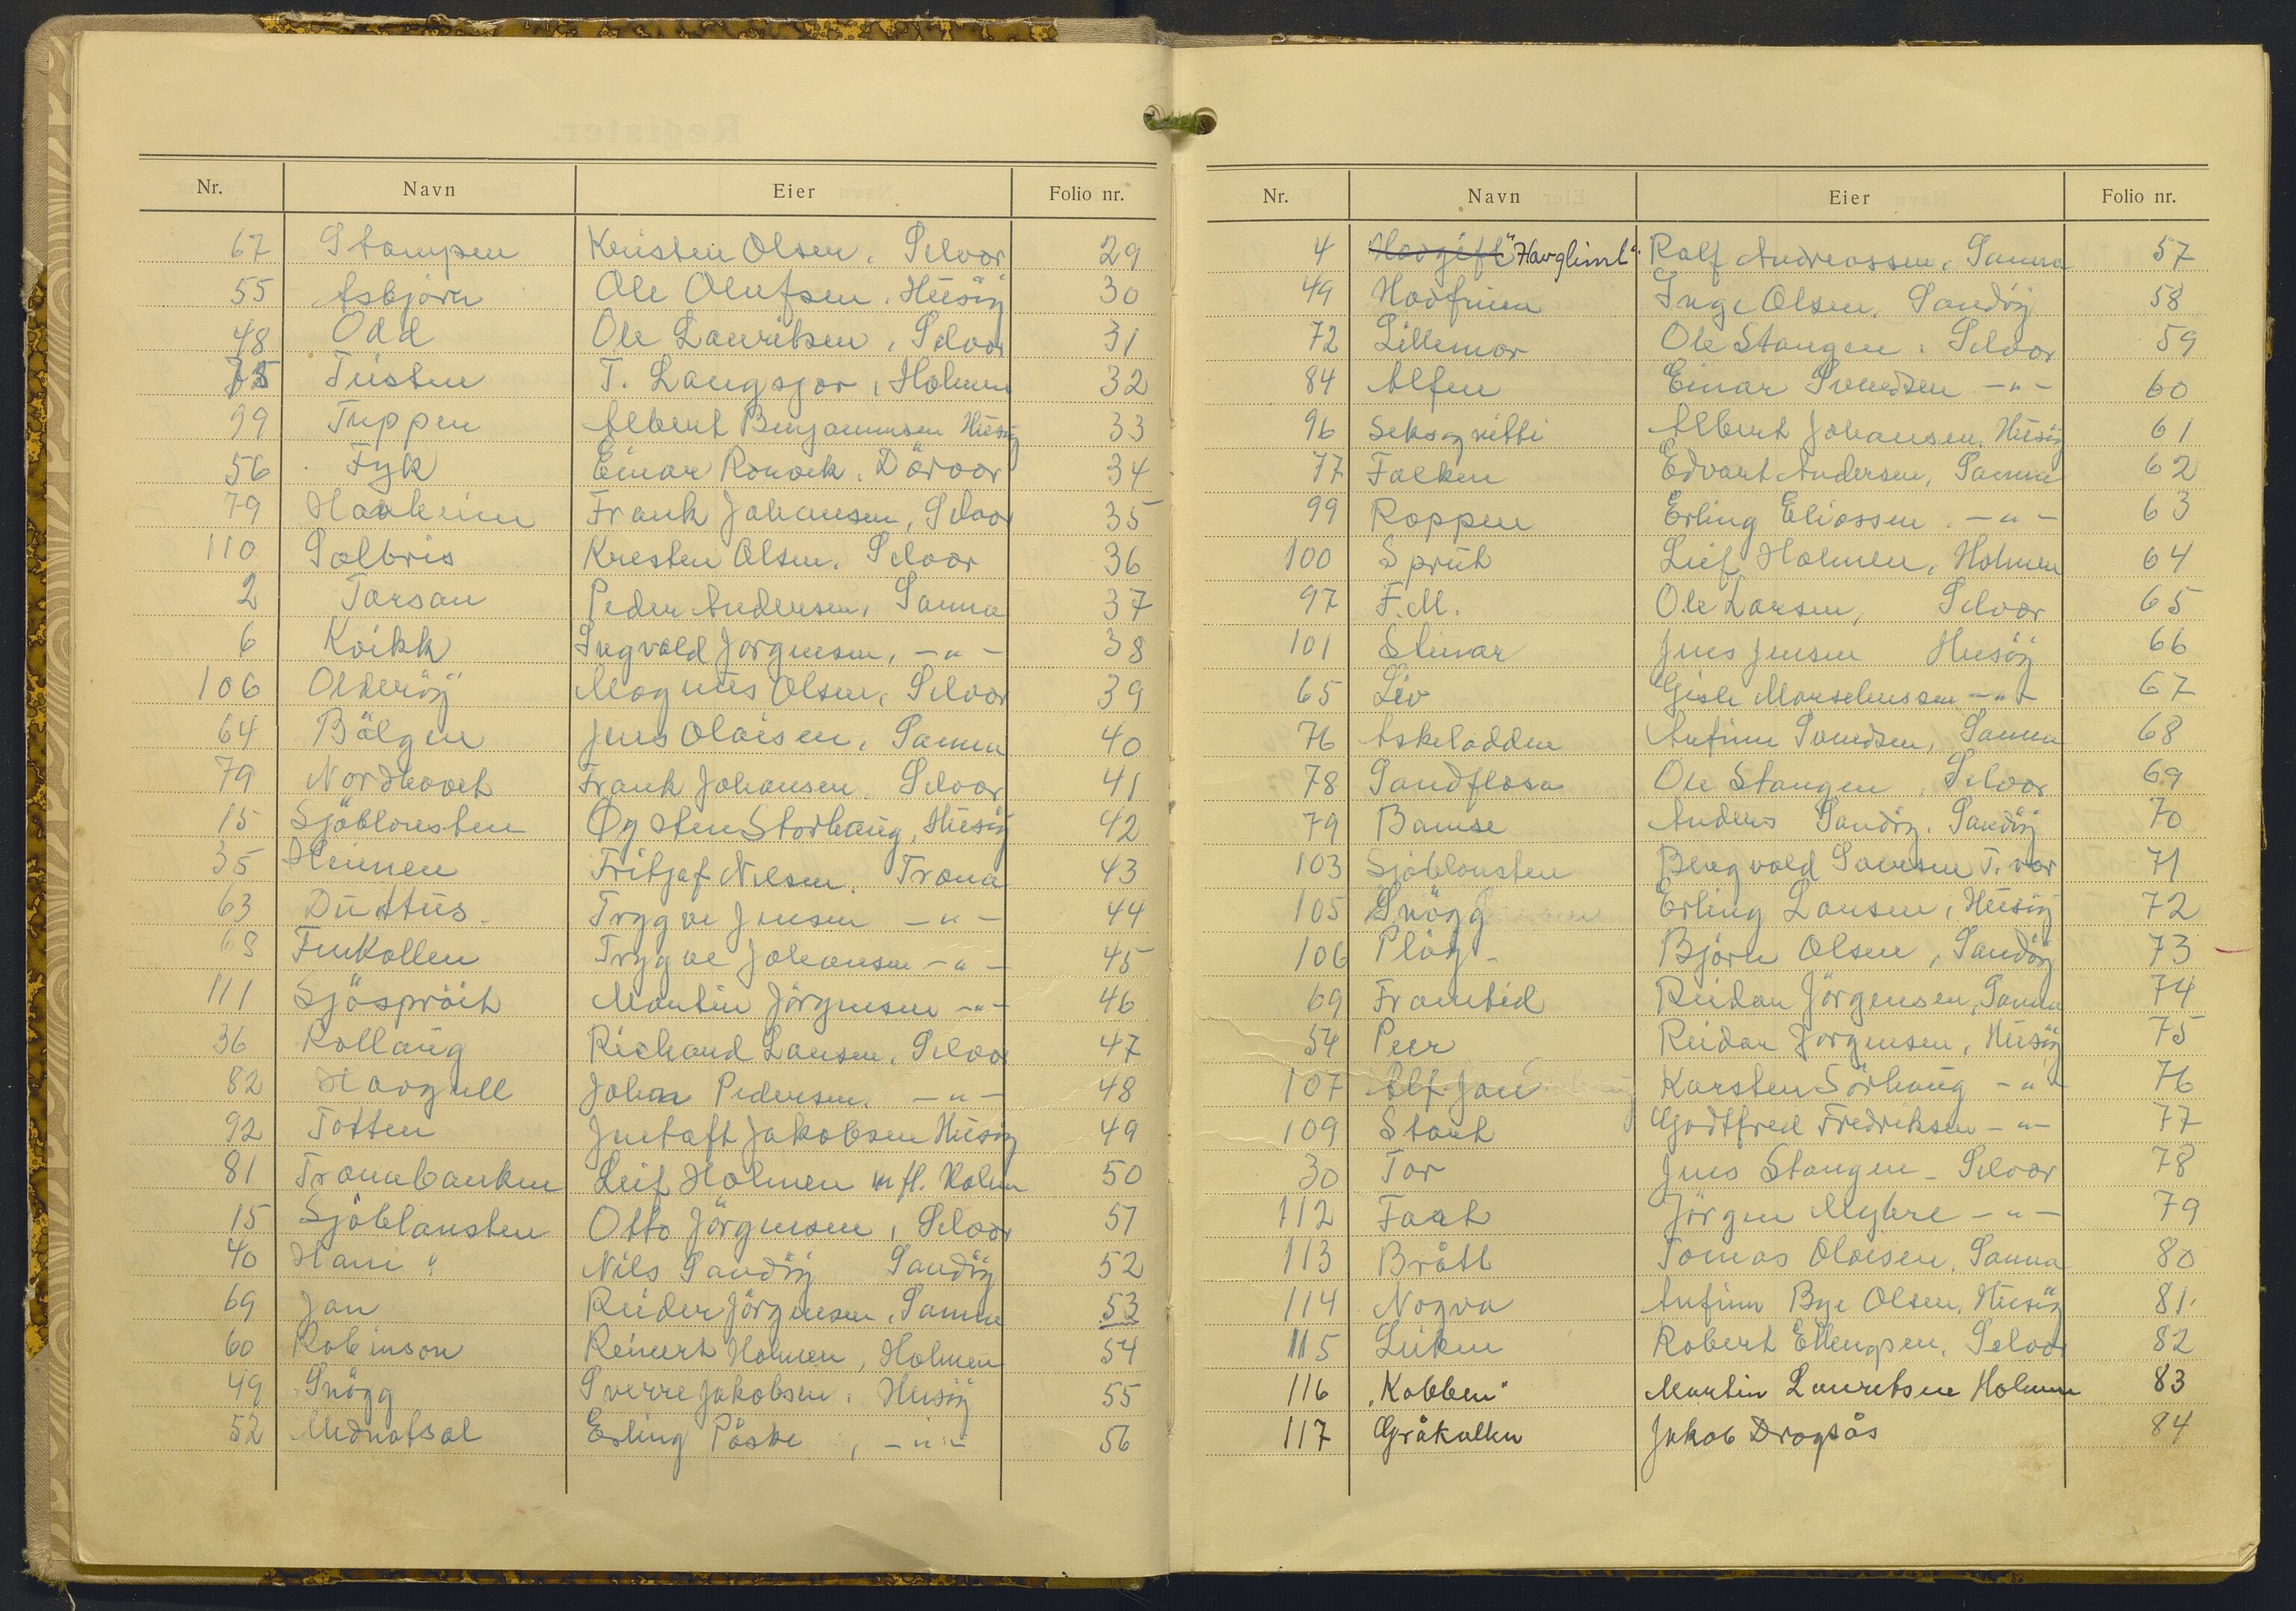 Nr. Navn Eier Folio nr.
67 Stampen Kristen Olsen, Selvær 29
55 Asbjörn Ole Olufsen, Husöy 30
48 Odd Ole Lauritsen, Selvær 31
75 Tusten T. Langsjor, Holmen 32
99 Tuppen Albert Benjaminsen Husöy 33
56 Fyk Einar Rorvik, Dörvær 34
79 Havheim Frank Johansen, Selvær 35
110 Solbris Kresten Olsen, Selvær 36
2 Tarsan Peder Andersen, Sanna 37
6 Kvikk Ingvald Jorgensen, -"- 38
106 Olderöy Magnus Olsen, Selvær 39
64 Bölgen Jens Olaisen, Sanna 40
79 Nordhavet Frank Johansen, Selvær 41
15 Sjöblomsten Øysten Storhaug, Husöy 42
35 Heimen Fritjof Nilsen, Træna 43
63 Duttus Trygve Jensen -"- 44
68 Finkollen Trygve Johansen -"- 45
111 Sjöspröit Martin Jörgensen -"- 46
36 Rollaug Richard Larsen, Selvær 47
82 Havgull Johan Pedersen, -"- 48
92 Totten Gustaft Jakobsen Husöy 49
81 Trænabanken Leif Holmen m fl. Holm 50
15 Sjöblomsten Otto Jörgensen, Selvær 51
40 Hani Nils Sandöy Sandöy 52
69 Jan Reidar Jörgensen, Sanna 53
60 Robinson Reinert Holmen, Holmen 54
49 Snögg Sverre Jakobsen, Husöy 55
52 Midnatsol Erling Påske, -"- 56
Nr. Navn Eier Folio nr.
4 Havgift "Havglimt" Ralf Andreassen, Sanna 57
49 Havfruen Inge Olsen, Sandöy 58
72 Lillemor Ole Stangen, Selvær 59
84 Alfen Einar Svendsen -"- 60
96 Seksognitti Albert Johansen, Husöy 61
77 Falken Edvart Andersen, Sanna 62
99 Roppen Erling Eliassen -"- 63
100 Sprut Leif Holmen, Holmen 64
97 F.M. Ole Larsen, Selvær 65
101 Steinar Jens Jensen Husöy 66
65 Liv Gisle Marseliussen -"- 67
76 Askeladden Anfinn Svendsen, Sanna 68
78 Sandflesa Ole Stangen, Selvær 69
79 Bamse Anders Sandöy, Sandöy 70
103 Sjöblomsten Bergvald Larsen T. vær 71
105 Snögg Erling Larsen, Husöy 72
106 Plög Björn Olsen, Sandöy 73
69 Framtid Reidar Jörgensen, Sanna 74
54 Peer Reidar Jorgensen, Husöy 75
107 Alf-Jan Karsten Sörhaug -"- 76
109 Stort Godtfred Fredriksen -"- 77
30 Tor Jens Stangen - Selvær 78
112 Faat Jörgen Myhre -"- 79
113 Brått Tomas Olaisen, Sanna 80
114 Nogva Anfinn Bye Olsen, Husöy 81
115 Leiken Robert Ellingsen, Selvær 82
116 "Kobben" Martin Lauritsen Holmen 83
117 Gråkallen Jakob Dragsås 84